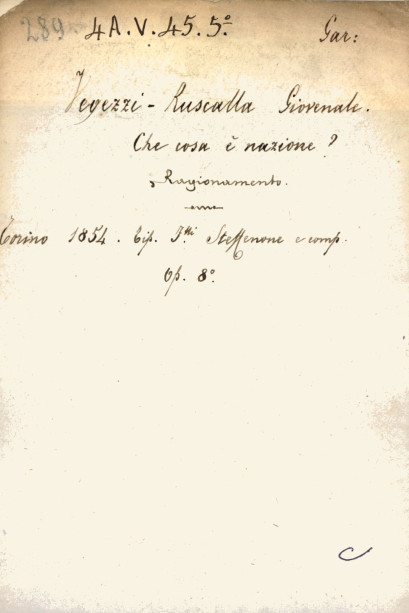 289 4A.V.45.5º Gar:
Vegezzi-Ruscalla Giovenale.
Che cosa è nazione?
Ragionamento.
Torino 1854. Tip. Ftti Steffenone e comp.
Op. 8º
C